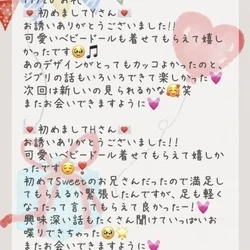 💌初めましてYさん💌
お誘いありがとうございました!!
可愛いベビードールも着せてもらえて嬉し
かったです🥹🎵
あのデザインがとってもカッコよかったのと、
ジブリの話もいろいろできて楽しかった💓
次回は新しいの見られるかな🥰笑
またお会いできますように💓
💌初めましてHさん💌
お誘いありがとうございました!!
可愛いベビードール着せてもらえて嬉しか
ったです☺️❣️
初めてSweetのお兄さんだったので満足し
てもらえるか緊張したんですが、足も軽く
なったって言ってもらえて良かったー!
興味深い話もたくさん聞けていっぱいお
喋りできちゃった🥹🌟
またお会いできますように💓